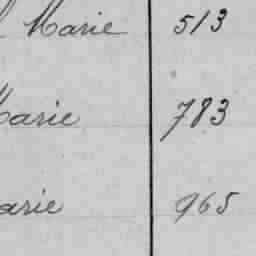 Marie 513
Marie 783
arie 965